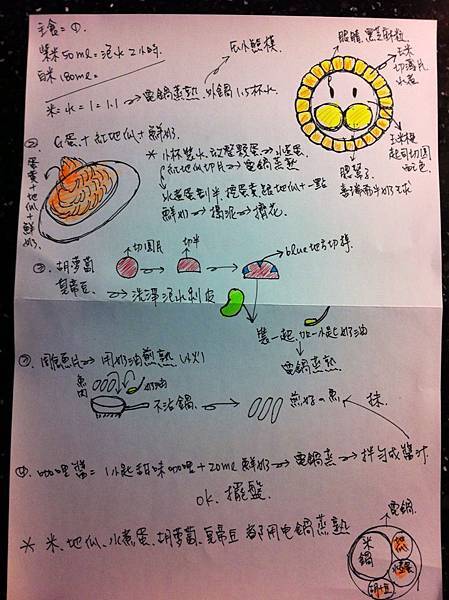 主食=①.
紫米50ml=泡水2小時.
白米180ml=
米=水=1=1.1 → 電鍋蒸熟.外鍋1.5杯水.
眼睛.黑芝麻粒
玉米
切薄片
水煮
玉米棒
起司切圓
配色
②.
蛋黃+地瓜+鮮奶.
G蛋.+紅地瓜+鮮奶
*小杯裝水.
紅地瓜切片→電鍋蒸熟
水煮蛋剝半.挖蛋黃跟地瓜+一點
鮮奶→搗泥→擠花.
切圓片
切半
blue地方切掉
③.胡蘿蔔
皇帝豆.→洗澤泡水剝皮
裝一起.加一小匙奶油
電鍋蒸熟.
魚片→用奶油煎熟(小火)
魚肉
奶油
不沾鍋.
煎好の魚
抹.
④.咖哩醬=1小匙甜味咖哩+20ml鮮奶→電鍋蒸→拌勻成醬汁
OK.擺盤.
*米、地瓜、水煮蛋、胡蘿蔔、皇帝豆 都用电鍋蒸熟
電鍋.
米鍋
地瓜
水煮蛋
胡+豆